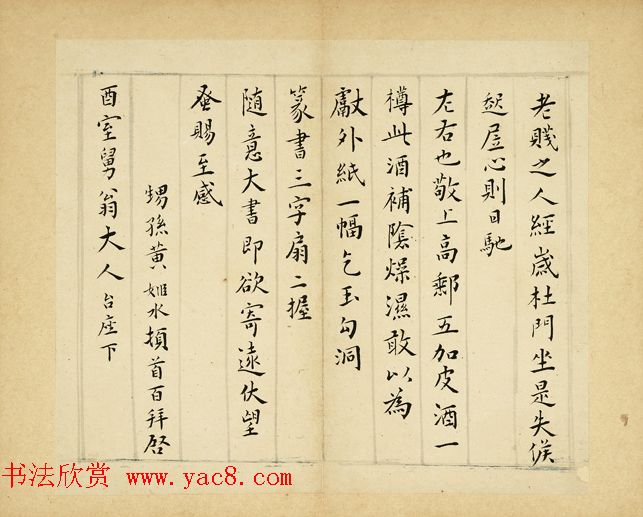 老賤之人經歲杜門坐是失候
起居心則日馳
左右也敬上高郵五加皮酒一
樽此酒補陰燥濕敢以為
獻外紙一幅乞玉勾洞
篆書三字扇二握
随意大書即欲寄遠伏望
蚤賜至感
甥孫黃姬水頓首百拜啓
酉室舅翁大人台座下
书法欣赏 www.yac8.com